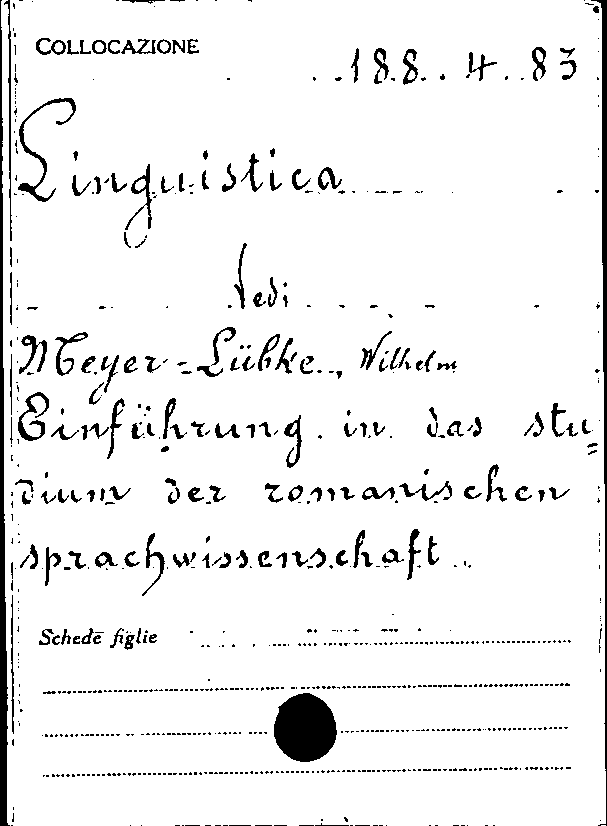 COLLOCAZIONE
188. 4. 83
Linguistica
Vedi
Meyer-Lübke, Wilhelm
Einführung in das stu=
dium der romanischen
sprachwissenschaft
Schede figlie